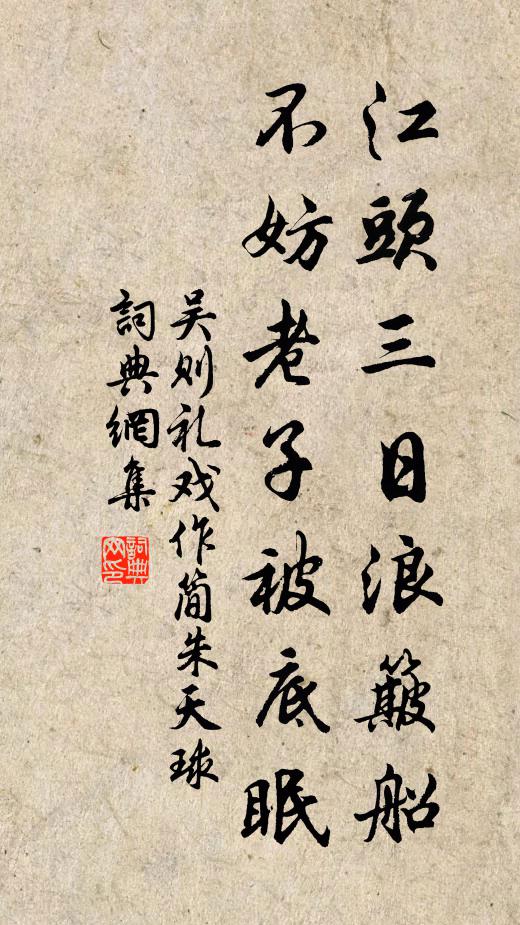 江頭三日浪簸船
不妨老子被底眠
吴则礼戏作简朱天球
詞典網集
詞典網印